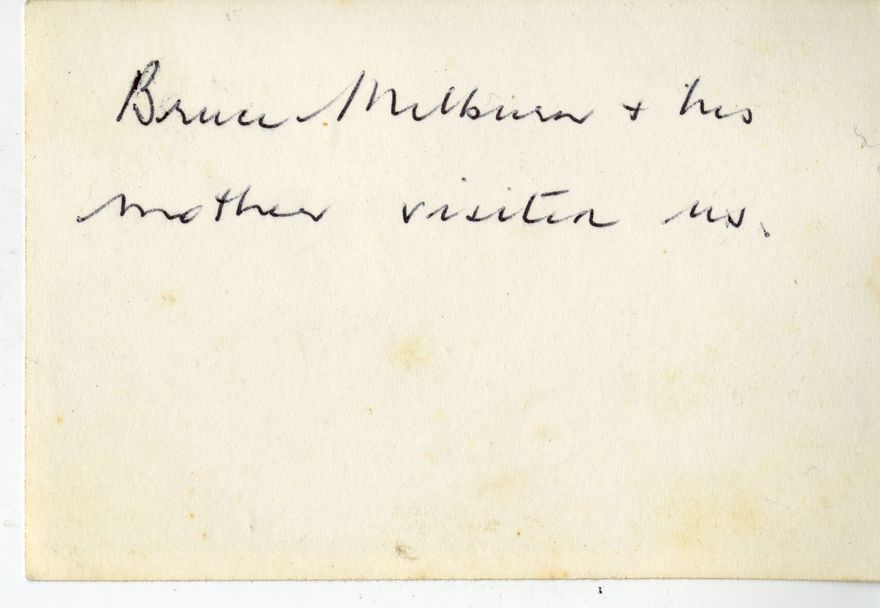 Bruce Milburn + his
mother visited us.